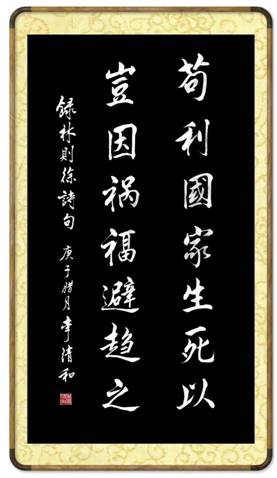 苟利國家生死以
豈因祸福避趋之
録林則徐詩句 庚子腊月李清和